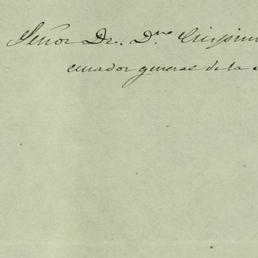 Señor Dr. Dn. Crispin
curador general de la